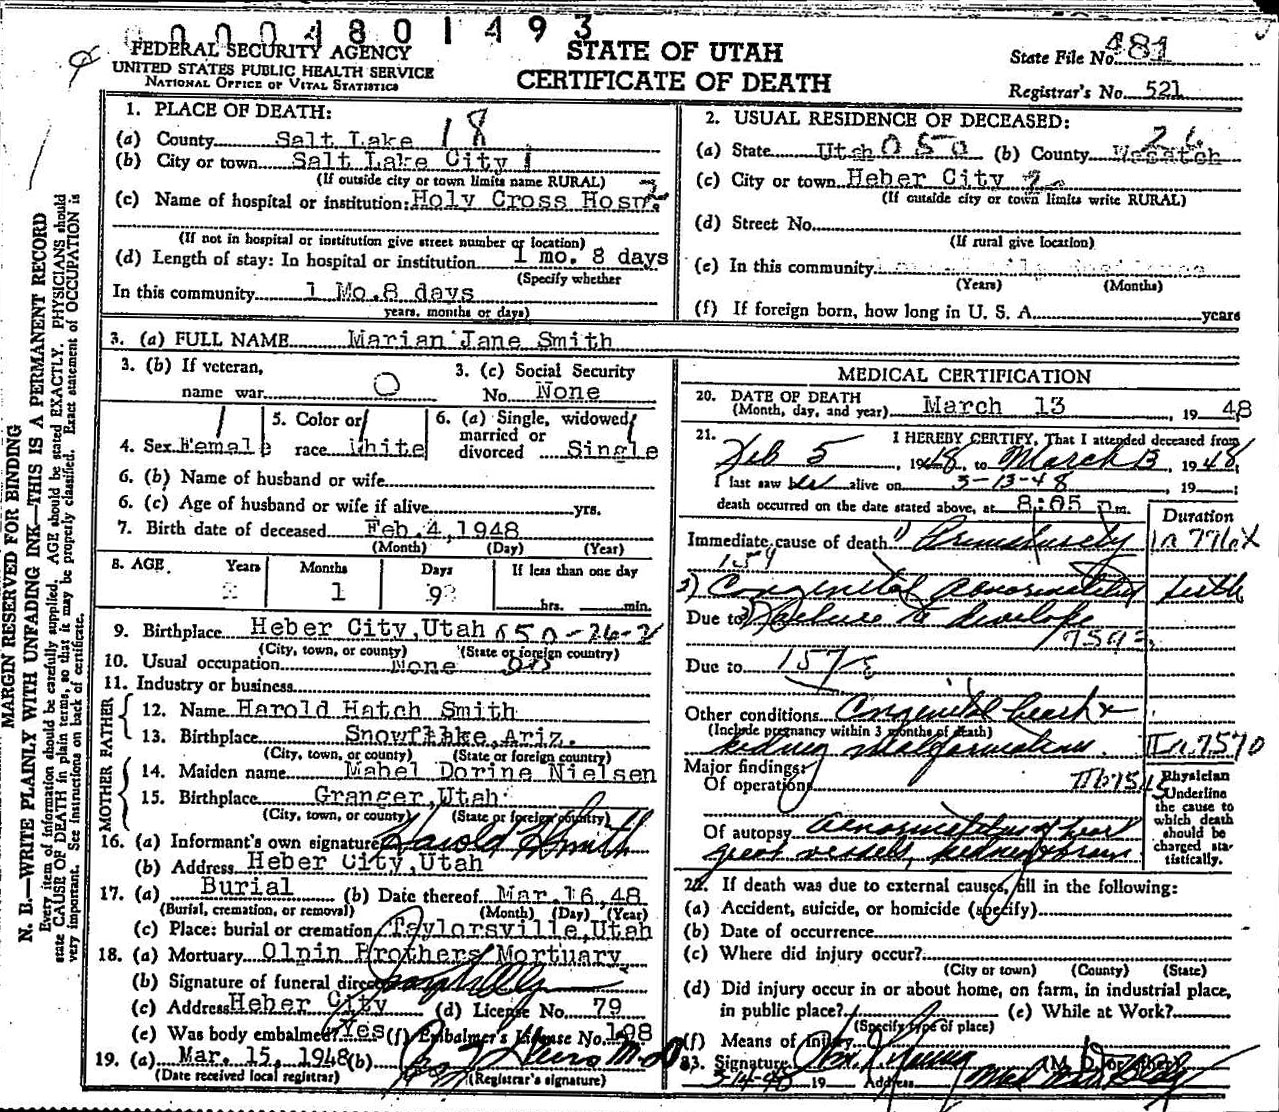 0004801493
FEDERAL SECURITY AGENCY
UNITED STATES PUBLIC HEALTH SERVICE
NATIONAL OFFICE OF VITAL STATISTICS
STATE OF UTAH
CERTIFICATE OF DEATH
State File No. 481
Registrar's No. 521
MARGIN RESERVED FOR BINDING
N. B.—WRITE PLAINLY WITH UNFADING INK—THIS IS A PERMANENT RECORD
Every item of information should be carefully supplied. AGE should be stated EXACTLY. PHYSICIANS should
state CAUSE OF DEATH in plain terms, so that it may be properly classified. Exact statement of OCCUPATION is
very important. See instructions on back of certificate.
1. PLACE OF DEATH:
(a) County Salt Lake 18
(b) City or town Salt Lake City 1
(If outside city or town limits name RURAL)
(c) Name of hospital or institution: Holy Cross Hosp. 2
(If not in hospital or institution give street number or location)
(d) Length of stay: In hospital or institution 1 mo. 8 days
(Specify whether
In this community 1 Mo.8 days
years, months or days)
2. USUAL RESIDENCE OF DECEASED:
(a) State Utah 050 (b) County Wasatch 26
(c) City or town Heber City 2
(If outside city or town limits write RURAL)
(d) Street No.
(If rural give location)
(e) In this community
(Years) (Months)
(f) If foreign born, how long in U. S. A. years
3. (a) FULL NAME Marian Jane Smith
3. (b) If veteran,
name war O
3. (c) Social Security
No. None
4. Sex Female
5. Color or
race White
6. (a) Single, widowed,
married or
divorced Single
6. (b) Name of husband or wife
6. (c) Age of husband or wife if alive yrs.
7. Birth date of deceased Feb.4,1948
(Month) (Day) (Year)
8. AGE.
Years Months Days If less than one day
1 9 hrs. min.
9. Birthplace Heber City,Utah 050-26-2
(City, town, or county) (State or foreign country)
10. Usual occupation None
11. Industry or business
FATHER
12. Name Harold Hatch Smith
13. Birthplace Snowflake,Ariz.
(City, town, or county) (State or foreign country)
MOTHER
14. Maiden name Mabel Dorine Nielsen
15. Birthplace Granger,Utah
(City, town, or county) (State or foreign country)
16. (a) Informant's own signature Harold H Smith
(b) Address Heber City,Utah
17. (a) Burial (b) Date thereof Mar.16,48
(Burial, cremation, or removal) (Month) (Day) (Year)
(c) Place: burial or cremation Taylorsville,Utah
18. (a) Mortuary Olpin Brothers Mortuary
(b) Signature of funeral director
(c) Address Heber City (d) License No. 79
(e) Was body embalmed? Yes (f) Embalmer's License No. 108
19. (a) Mar. 15, 1948 (b) M.D.
(Date received local registrar) (Registrar's signature)
MEDICAL CERTIFICATION
20. DATE OF DEATH
(Month, day, and year) March 13, 1948
21. I HEREBY CERTIFY, That I attended deceased from
Feb 5, 1948, to March 13, 1948;
I last saw her alive on 3-13-48, 19 ;
death occurred on the date stated above, at 8:05 p.m.
Duration
Immediate cause of death 1) Prematurely
159
2) Congenital abnormality birth
Due to 3) Failure to develope
7593
Due to 157/E
Other conditions Congenital heart &
(Include pregnancy within 3 months of death)
kidney malformations. IIa7570
Major findings:
Of operations IIb7545
Of autopsy abnormalities of heart
great vessels, kidney & brain
Physician
Underline
the cause to
which death
should be
charged sta-
tistically.
22. If death was due to external causes, fill in the following:
(a) Accident, suicide, or homicide (specify)
(b) Date of occurrence
(c) Where did injury occur?
(City or town) (County) (State)
(d) Did injury occur in or about home, on farm, in industrial place,
in public place? (e) While at Work?
(Specify type of place)
(f) Means of Injury
23. Signature (M. D. or other)
3-14-48 19 Address Med Arts Bldg